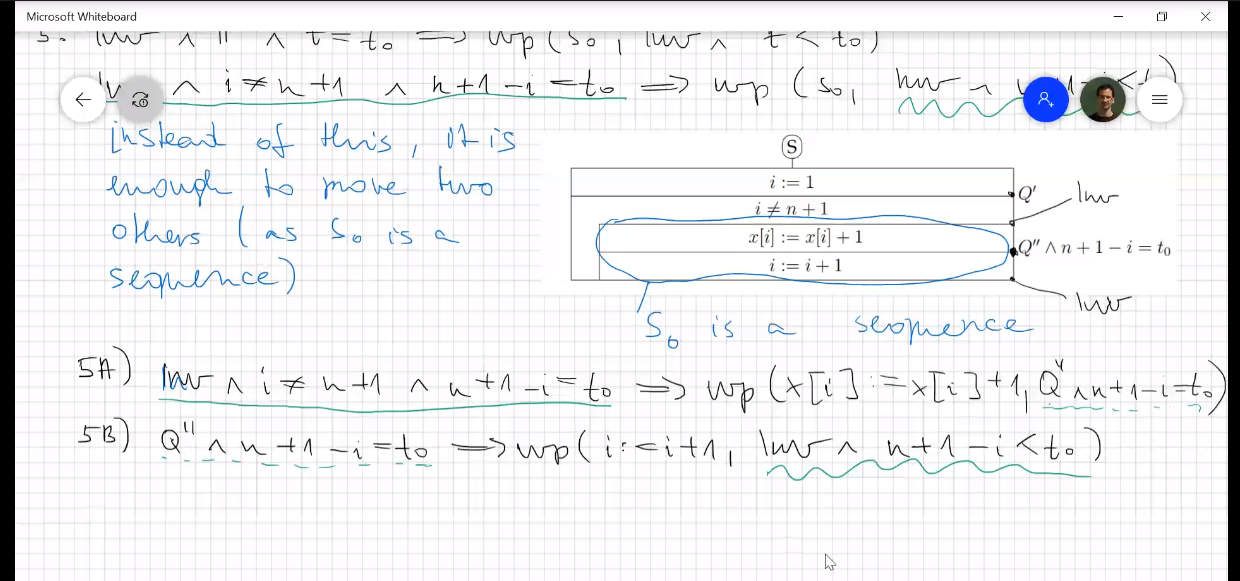 Microsoft Whiteboard
5. Inv ∧ π ∧ t = t₀ ⟹ wp(S₀, Inv ∧ t < t₀)
∧ i ≠ n+1 ∧ n+1-i = t₀ ⟹ wp (S₀, Inv ∧
instead of this, it is
enough to prove two
others (as S₀ is a
sequence)
S
i := 1
Q'
i ≠ n + 1
Inv
x[i] := x[i] + 1
Q'' ∧ n + 1 − i = t₀
i := i + 1
Inv
S₀ is a sequence
5A) Inv ∧ i ≠ n+1 ∧ n+1-i = t₀ ⟹ wp(x[i] := x[i]+1, Q'' ∧ n+1-i = t₀)
5B) Q'' ∧ n+1-i = t₀ ⟹ wp(i := i+1, Inv ∧ n+1-i < t₀)